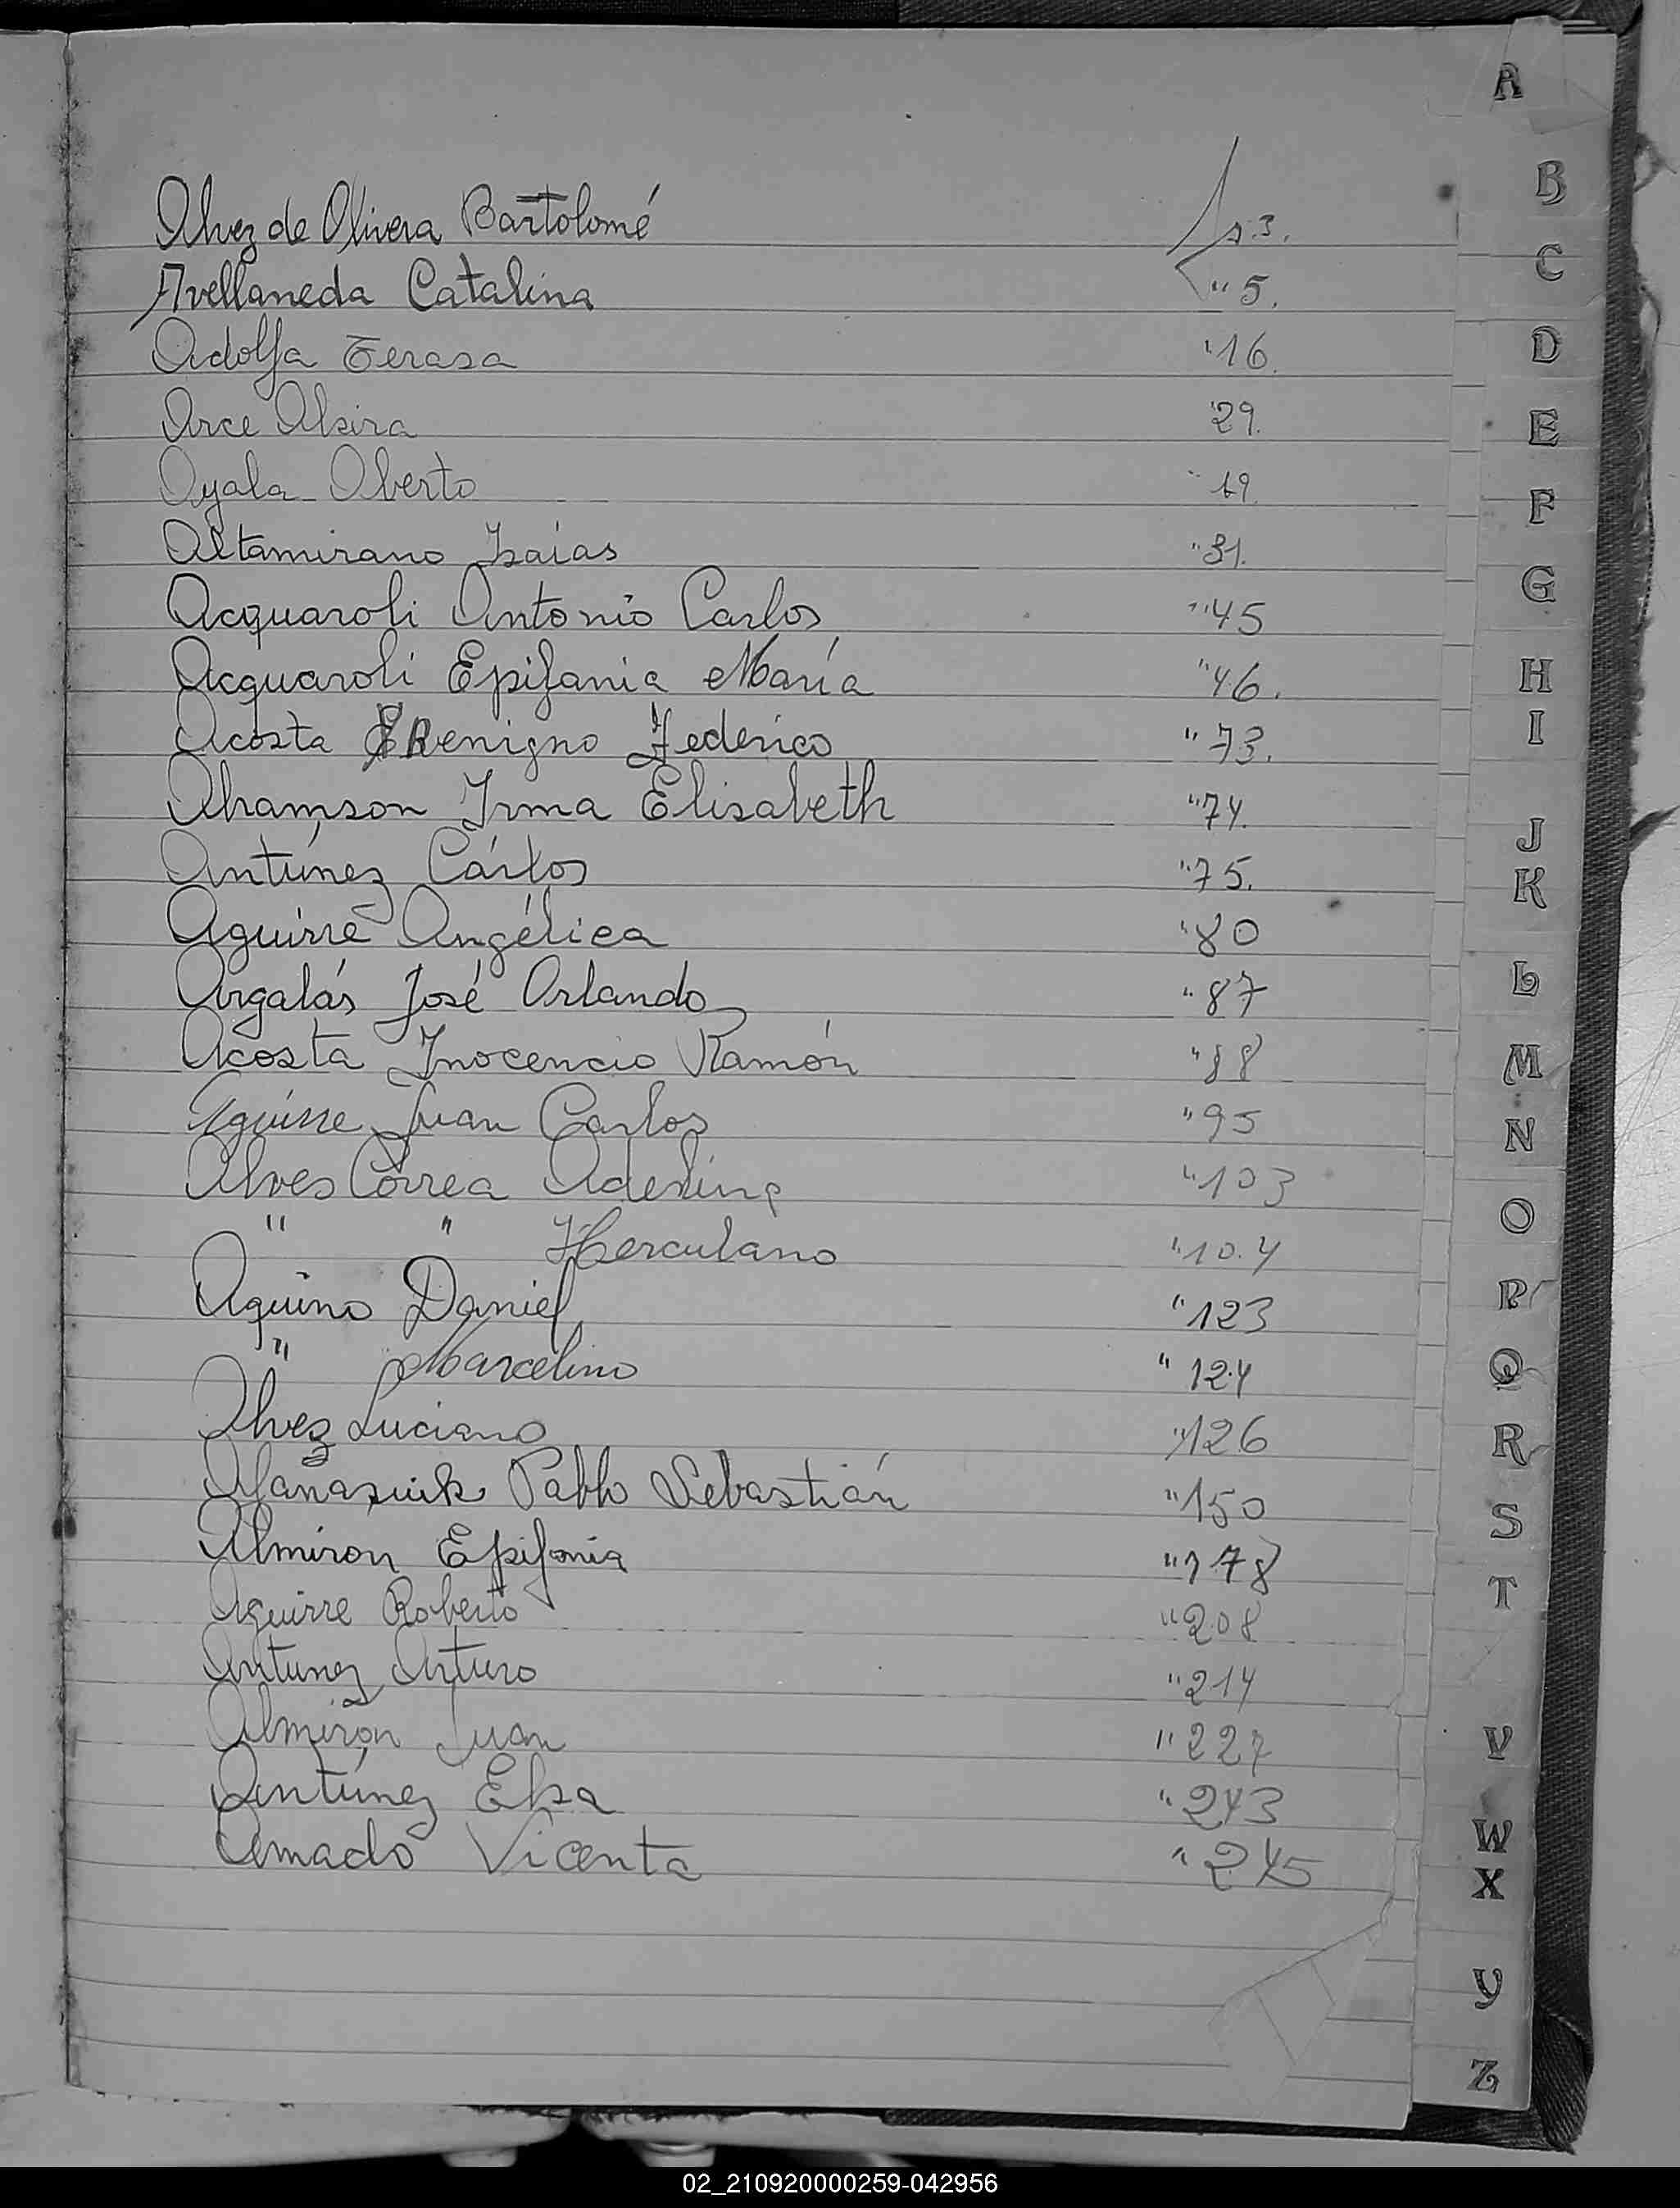 Alvez de Olivera Bartolomé p.3.
Avellaneda Catalina " 5.
Adolfa Teresa " 16.
Arce Alsira " 29.
Ayala Alberto " 19.
Altamirano Isaías " 31.
Acquaroli Antonio Carlos " 45
Acquaroli Epifania María " 46.
Acosta Benigno Federico " 73.
Ahamson Irma Elisabeth " 74.
Antúnez Carlos " 75.
Aguirre Angélica " 80
Argalás José Orlando " 87
Acosta Inocencio Ramón " 88
Aguirre Juan Carlos " 95
Alves Correa Adelina " 103
" " Herculano " 104
Aquino Daniel " 123
" Marcelino " 124
Alvez Luciano " 126
Afanasiuk Pablo Sebastián " 150
Almiron Epifania " 178
Aguirre Roberto " 208
Antunez Arturo " 214
Almirón Juan " 227
Antúnez Elsa " 243
Amado Vicenta " 245
A
B
C
D
E
F
G
H
I
J
K
L
M
N
O
P
Q
R
S
T
V
W
X
Y
Z
02_210920000259-042956